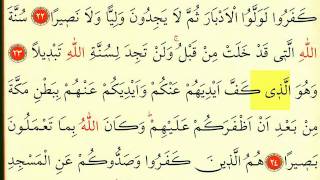 كَفَرُوا لَوَلَّوُا الْاَدْبَارَ ثُمَّ لَا يَجِدُونَ وَلِيًّا وَلَا نَصِيرًا ﴿٢٢﴾ سُنَّةَ
اللّٰهِ الَّتِي قَدْ خَلَتْ مِنْ قَبْلُ وَلَنْ تَجِدَ لِسُنَّةِ اللّٰهِ تَبْدِيلًا ﴿٢٣﴾
وَهُوَ الَّذِي كَفَّ اَيْدِيَهُمْ عَنْكُمْ وَاَيْدِيَكُمْ عَنْهُمْ بِبَطْنِ مَكَّةَ
مِنْ بَعْدِ اَنْ اَظْفَرَكُمْ عَلَيْهِمْ وَكَانَ اللّٰهُ بِمَا تَعْمَلُونَ
بَصِيرًا ﴿٢٤﴾ هُمُ الَّذِينَ كَفَرُوا وَصَدُّوكُمْ عَنِ الْمَسْجِدِ